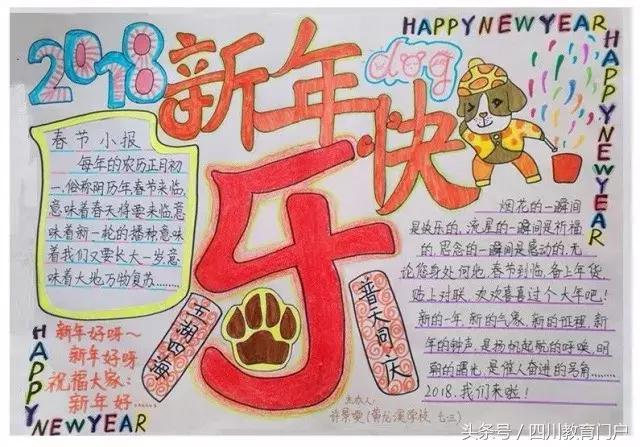 HAPPY NEW YEAR
2018
新年快
乐
dog
HAPPY NEW YEAR
春节小报
每年的农历正月初
一,俗称阴历年春节来临,
意味着春天将要来临,意
味着新一轮的播种意味
着我们又要长大一岁意
味着大地万物复苏……
烟花的一瞬间
是快乐的,流星的一瞬间是祈福
的,思念的一瞬间是感动的,无
论您身处何地,春节到临,备上年货
贴上对联,欢欢喜喜过个大年吧!
新的一年,新的气象,新的征程,新
年的钟声,是扬帆起航的呼唤,明
朝的曙光,是催人奋进的号角……
2018.我们来啦!
五湖四海
普天同庆
新年好呀~
新年好呀
祝福大家:
新年好……
HAPPY NEW YEAR
主办人:
(黄龙溪学校 七三)
头条号/四川教育门户